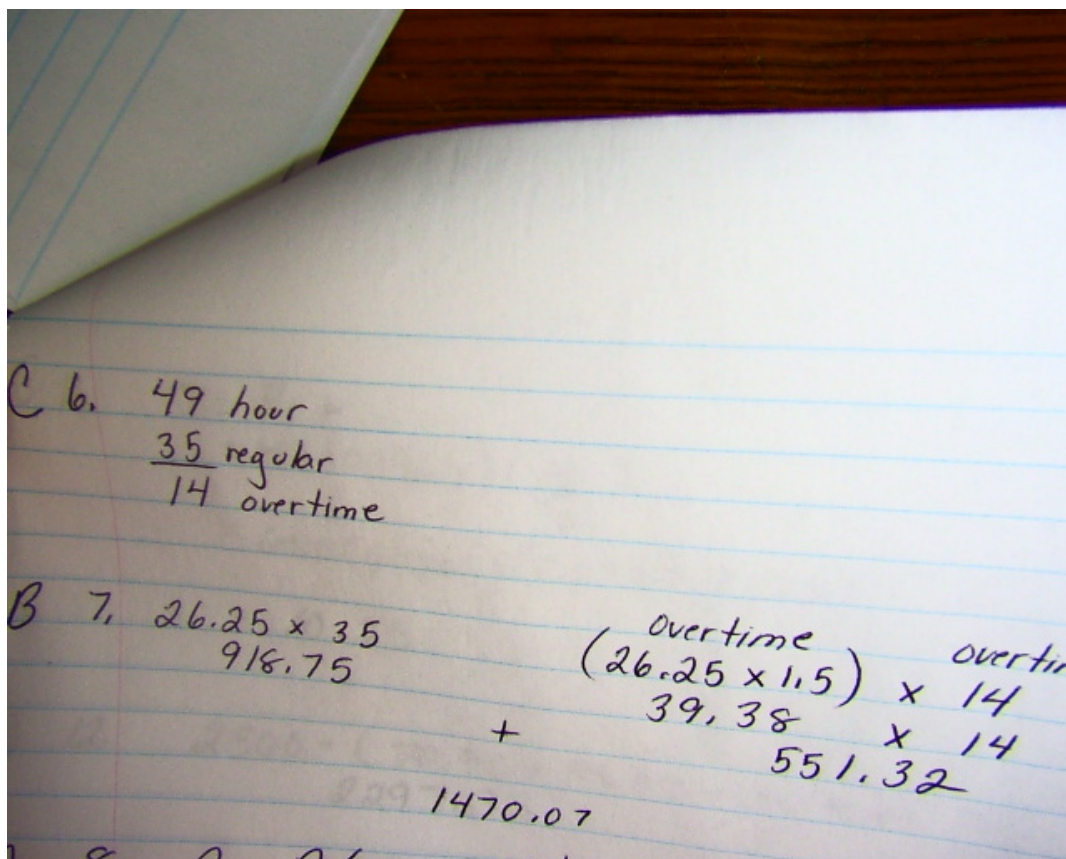 C 6. 49 hour
35 regular
14 overtime
B 7. 26.25 × 35
918.75
overtime
(26.25 × 1.5) × 14
39.38 × 14
+
551.32
1470.07